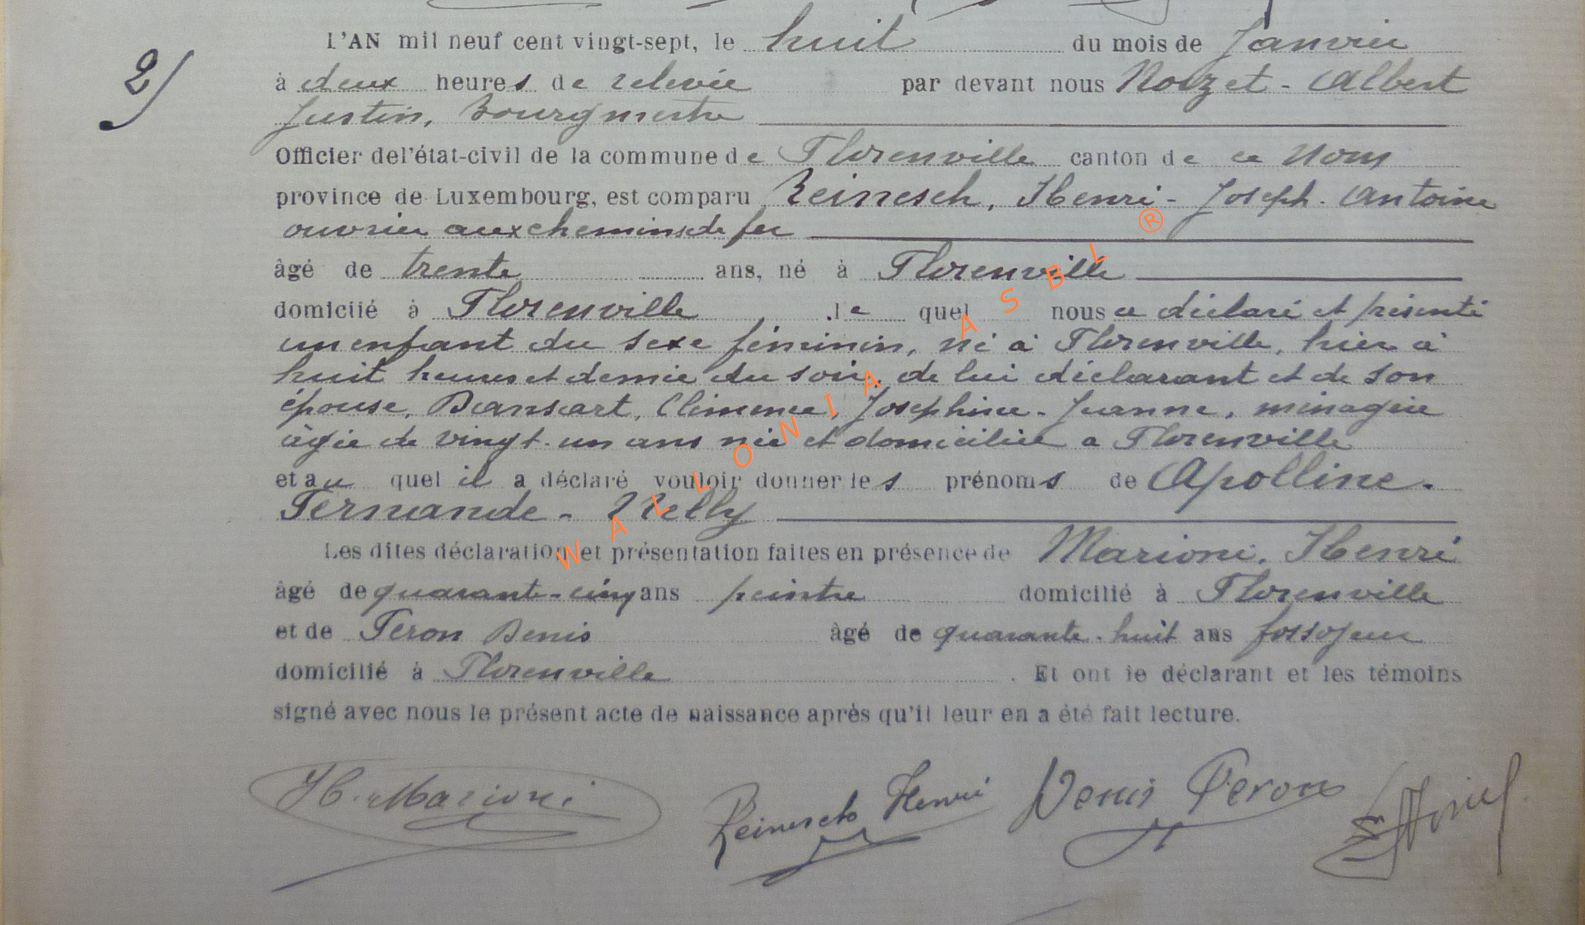 2)
L'AN mil neuf cent vingt-sept, le huit du mois de Janvier
à deux heures de relevée par devant nous Noizet - Albert
Justin, Bourgmestre
Officier de l'état-civil de la commune de Florenville canton de ce Nom
province de Luxembourg, est comparu Reinesch, Henri - Joseph - Antoine
ouvrier aux chemins de fer
âgé de trente ans, né à Florenville
domicilié à Florenville le quel nous a déclaré et présenté
un enfant du sexe féminin, né à Florenville, hier à
huit heures et demie du soir, de lui déclarant et de son
épouse, Dansart, Clémence, Joséphine - Jeanne, ménagère
âgée de vingt-un ans née et domiciliée a Florenville
et au quel il a déclaré vouloir donner les prénoms de Apolline -
Fernande - Nelly
Les dites déclaration et présentation faites en présence de Marioni, Henri
âgé de quarante-cinq ans peintre domicilié à Florenville
et de Feron Denis âgé de quarante-huit ans fossoyeur
domicilié à Florenville. Et ont le déclarant et les témoins
signé avec nous le présent acte de naissance après qu'il leur en a été fait lecture.
H. Marioni Reinesch Henri Denis Feron
WALLONIA ASBL ®